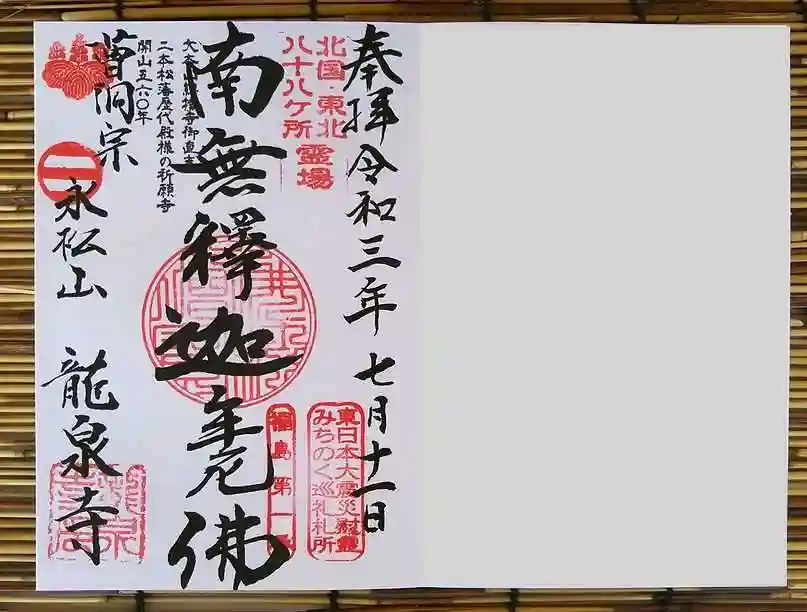 奉拝 令和三年 七月十一日
北国・東北
八十八ケ所
霊場
東日本大震災慰霊
みちのく巡礼札所
福島第一番
南無釋迦牟尼佛
大本山總持寺御直末
二本松藩歴代殿様の祈願寺
開山五六〇年
曹洞宗
永松山 龍泉寺